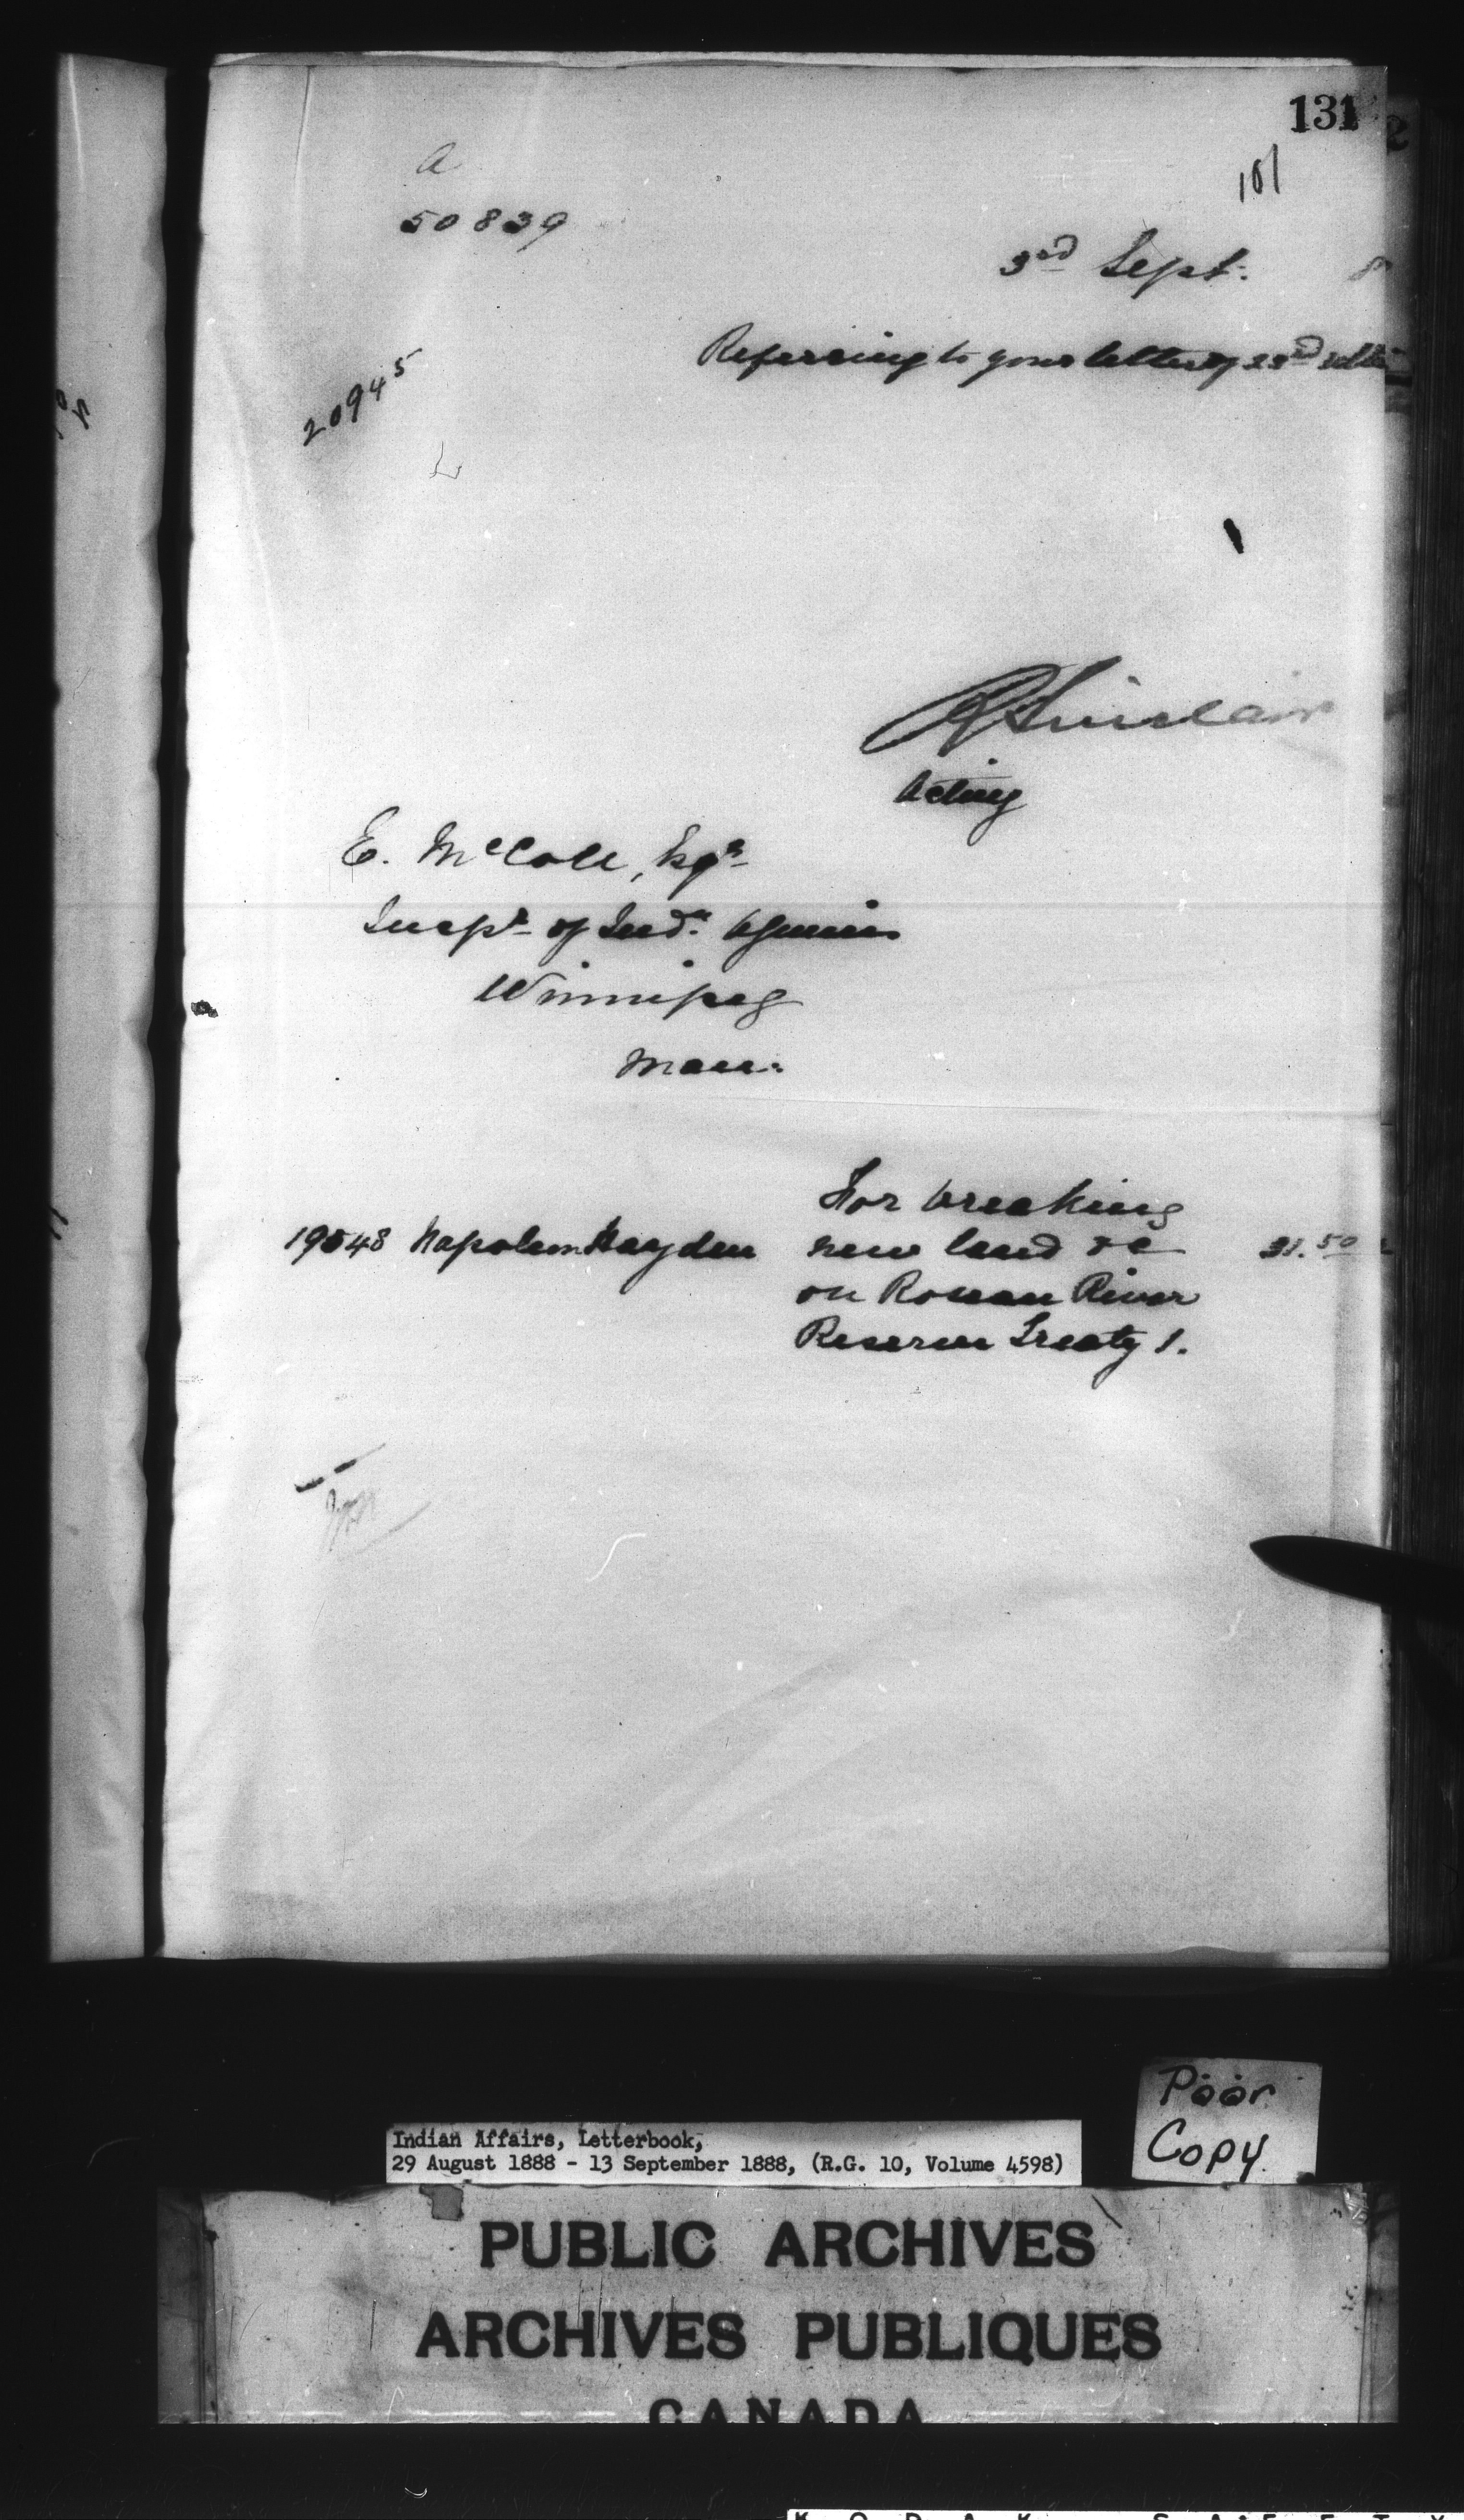 131
101
a
50839
3rd Sept. 8
Referring to your letter of 23rd ulto
20945
L
R Sinclair
Acting
E. McColl, Esqr
Inspr of Indn Agencies
Winnipeg
Man.
For breaking
19548 Napoleon Hayden new land &c 31.50
on Roseau River
Reserve Treaty 1.
Poor
Copy
Indian Affairs, Letterbook,
29 August 1888 - 13 September 1888, (R.G. 10, Volume 4598)
PUBLIC ARCHIVES
ARCHIVES PUBLIQUES
CANADA